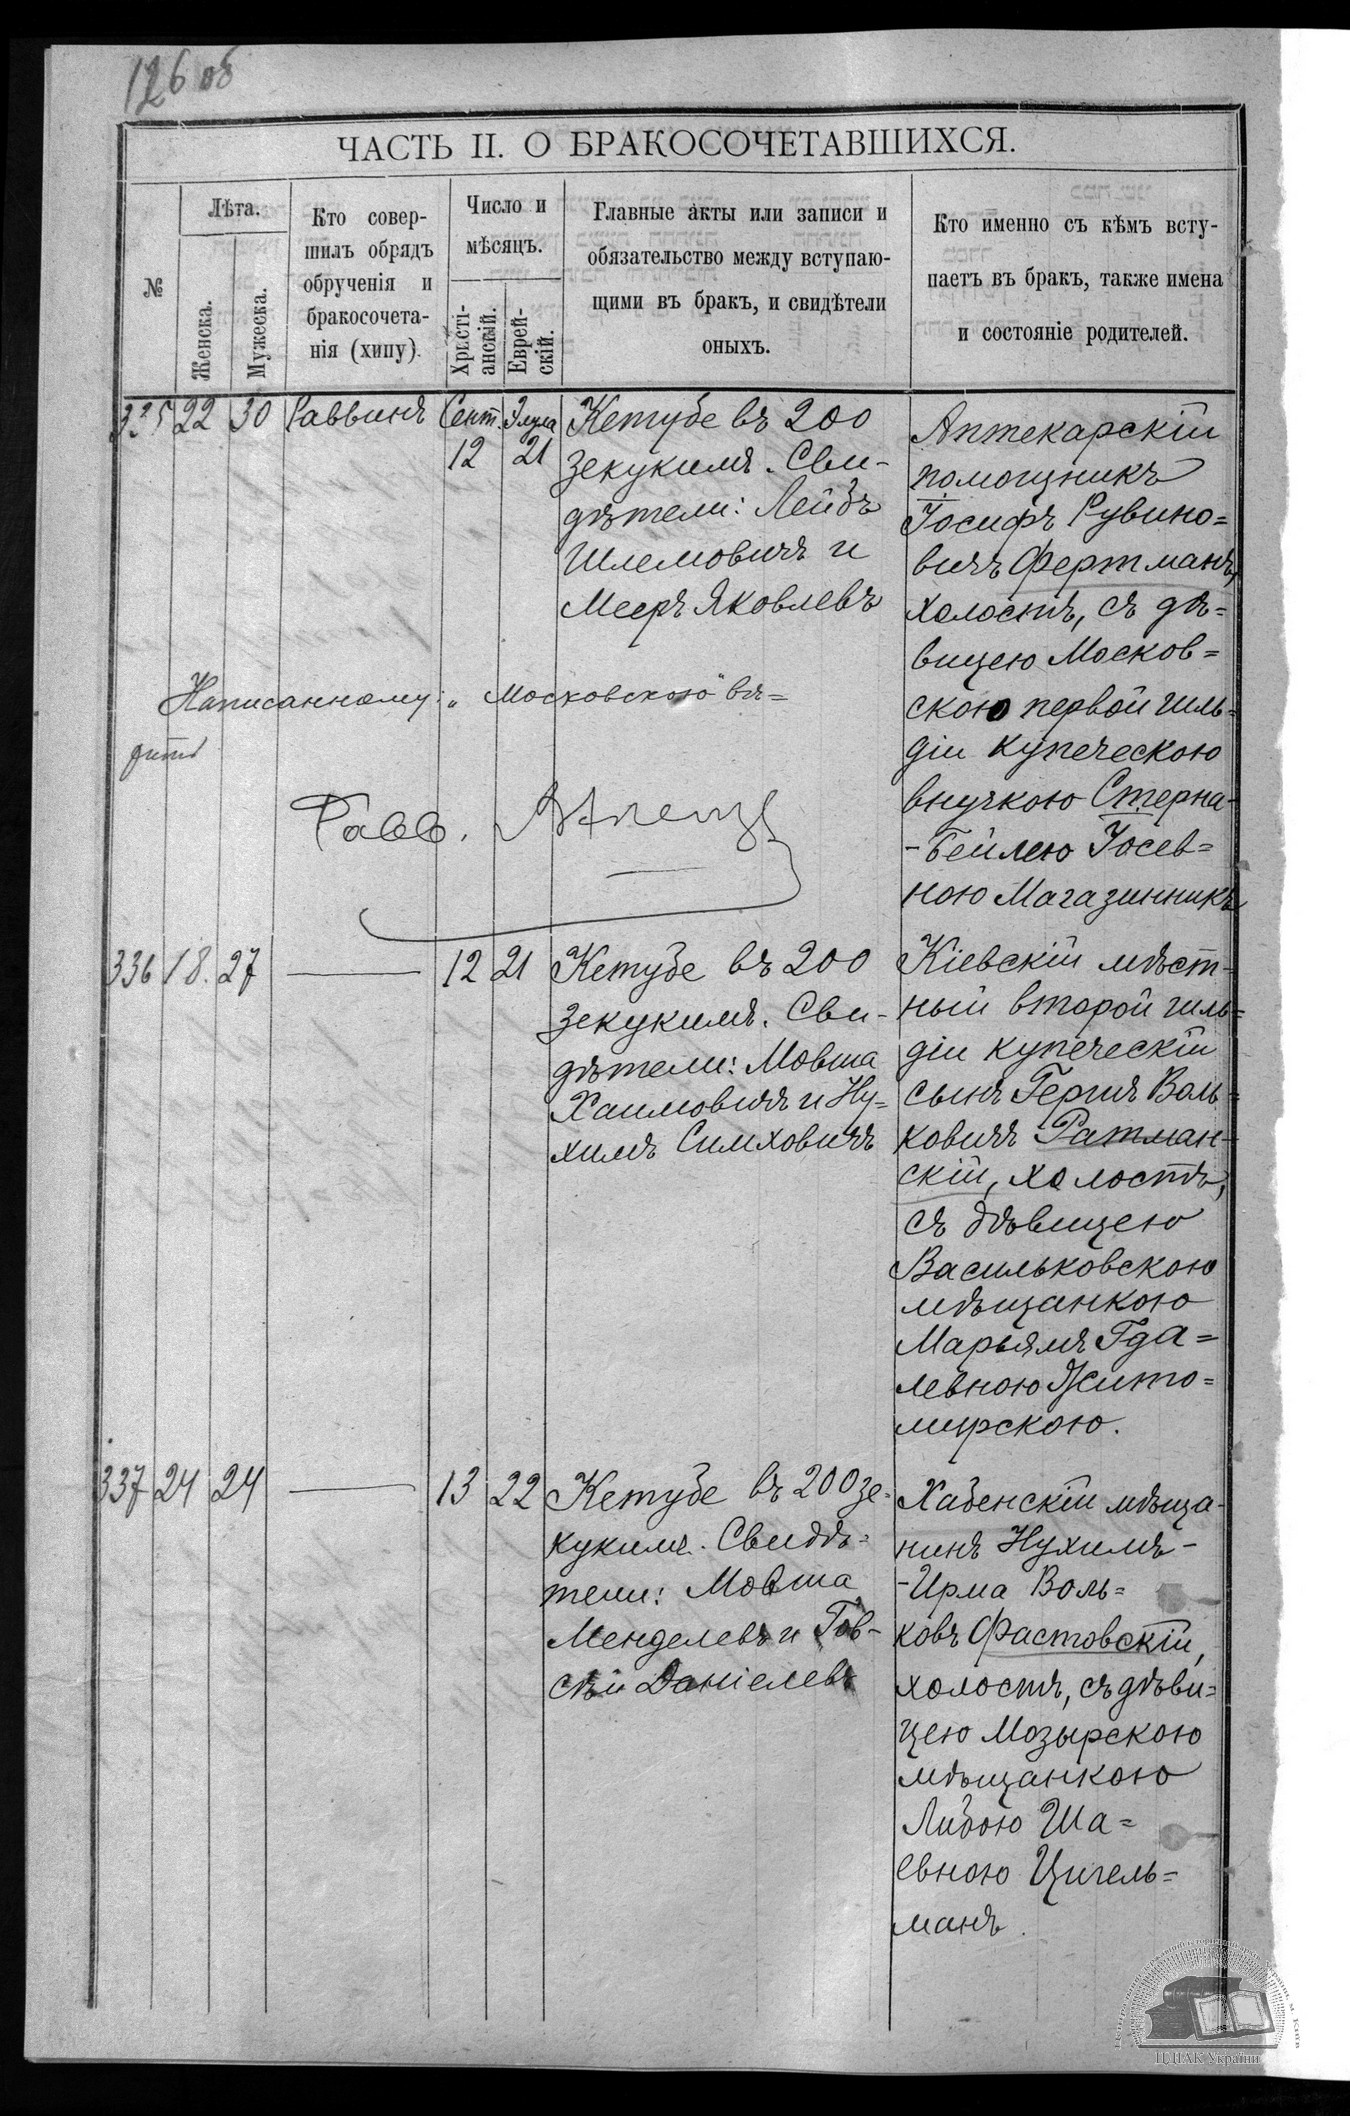 126 об
ЧАСТЬ II. О БРАКОСОЧЕТАВШИХСЯ.
№
Лѣта.
Женска.
Мужеска.
Кто совер-
шилъ обрядъ
обрученія и
бракосочета-
нія (хипу).
Число и
мѣсяцъ.
Христі-
анскій.
Еврей-
скій.
Главные акты или записи и
обязательство между вступаю-
щими въ бракъ, и свидѣтели
оныхъ.
Кто именно съ кѣмъ всту-
паетъ въ бракъ, также имена
и состояніе родителей.
335 22 30 Раввинъ Сент. 12 Элула 21
Кетубе въ 200
зекукимъ. Сви-
дѣтели: Лейбъ
Шлемовичъ и
Мееръ Яковлевъ
Аптекарскій
помощникъ
Іосифъ Рувино=
вичъ Фертманъ,
холостъ, съ дѣ=
вицею Москов=
скою первой гиль=
діи купеческою
внучкою Стерна-
-Бейлею Іосев=
ною Магазинникъ
Написанному: „Московскою" вѣ=
рить
Равв.
336 18. 27 — 12 21
Кетубе въ 200
зекукимъ. Сви-
дѣтели: Мовша
Хаимовичъ и Ну=
химъ Симховичъ
Кіевскій мѣст-
ный второй гиль=
діи купеческій
сынъ Гершъ Воль=
ковичъ Ратман-
скій, холостъ,
съ дѣвицею
Васильковскою
мѣщанкою
Марьямъ Гда=
левною Жито=
мирскою.
337 24 24 — 13 22
Кетубе въ 200 зе-
кукимъ. Свидѣ=
тели: Мовша
Менделевъ и Гов-
сѣй Даніелевъ
Хабенскій мѣща-
нинъ Нухимъ-
-Ирма Воль=
ковъ Фастовскій,
холостъ, съ дѣви=
цею Мозырскою
мѣщанкою
Либою Ша=
евною Цигель=
манъ.
ЦДІАК України